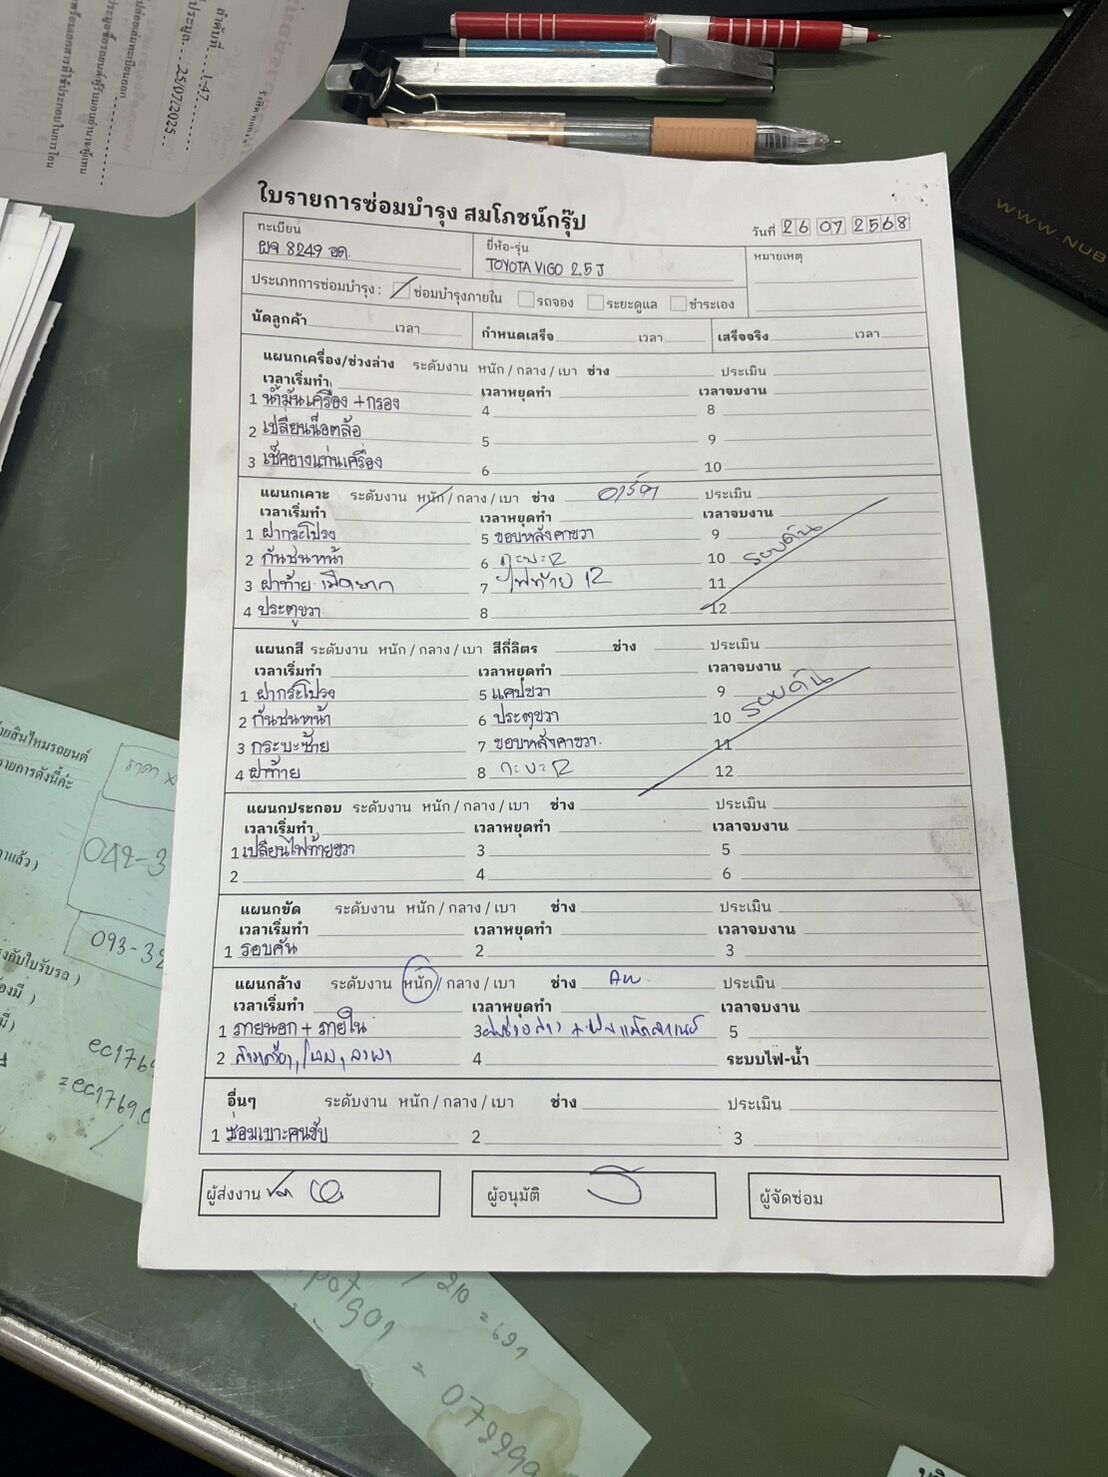 ลำดับที่....L-47
25/07/2025
WWW.NUB
ใบรายการซ่อมบำรุง สมโภชน์กรุ๊ป
วันที่ 26 07 2568
ทะเบียน ยี่ห้อ-รุ่น หมายเหตุ
ผจ 8249 อด. TOYOTA VIGO 2.5 J
ประเภทการซ่อมบำรุง : ซ่อมบำรุงภายใน รถจอง ระยะดูแล ชำระเอง
นัดลูกค้า เวลา กำหนดเสร็จ เวลา เสร็จจริง เวลา
แผนกเครื่อง/ช่วงล่าง ระดับงาน หนัก / กลาง / เบา ช่าง ประเมิน
เวลาเริ่มทำ เวลาหยุดทำ เวลาจบงาน
1 น้ำมันเครื่อง + กรอง 4 8
2 เปลี่ยนน็อตล้อ 5 9
3 เช็คยางแท่นเครื่อง 6 10
แผนกเคาะ ระดับงาน หนัก / กลาง / เบา ช่าง ประเมิน
เวลาเริ่มทำ เวลาหยุดทำ เวลาจบงาน
1 ฝากระโปรง 5 ขอบหลังคาขวา 9
2 กันชนหน้า 6 10 รอบคัน
3 ฝาท้าย 7 ไฟท้าย 11
4 ประตูขวา 8 12
แผนกสี ระดับงาน หนัก / กลาง / เบา สีกี่ลิตร ช่าง ประเมิน
เวลาเริ่มทำ เวลาหยุดทำ เวลาจบงาน
1 ฝากระโปรง 5 แคปขวา 9
2 กันชนหน้า 6 ประตูขวา 10 รอบคัน
3 กระบะซ้าย 7 ขอบหลังคาขวา. 11
4 ฝาท้าย 8 12
แผนกประกอบ ระดับงาน หนัก / กลาง / เบา ช่าง ประเมิน
เวลาเริ่มทำ เวลาหยุดทำ เวลาจบงาน
1 เปลี่ยนไฟท้ายขวา 3 5
2 4 6
แผนกขัด ระดับงาน หนัก / กลาง / เบา ช่าง ประเมิน
เวลาเริ่มทำ เวลาหยุดทำ เวลาจบงาน
1 รอบคัน 2 3
แผนกล้าง ระดับงาน หนัก / กลาง / เบา ช่าง ประเมิน
เวลาเริ่มทำ เวลาหยุดทำ เวลาจบงาน
1 ภายนอก + ภายใน 3 5
2 4 ระบบไฟ-น้ำ
อื่นๆ ระดับงาน หนัก / กลาง / เบา ช่าง ประเมิน
1 ซ่อมเบาะคนขับ 2 3
ผู้ส่งงาน ผู้อนุมัติ ผู้จัดซ่อม
042-3
093-32
ec1769
=ec1769.